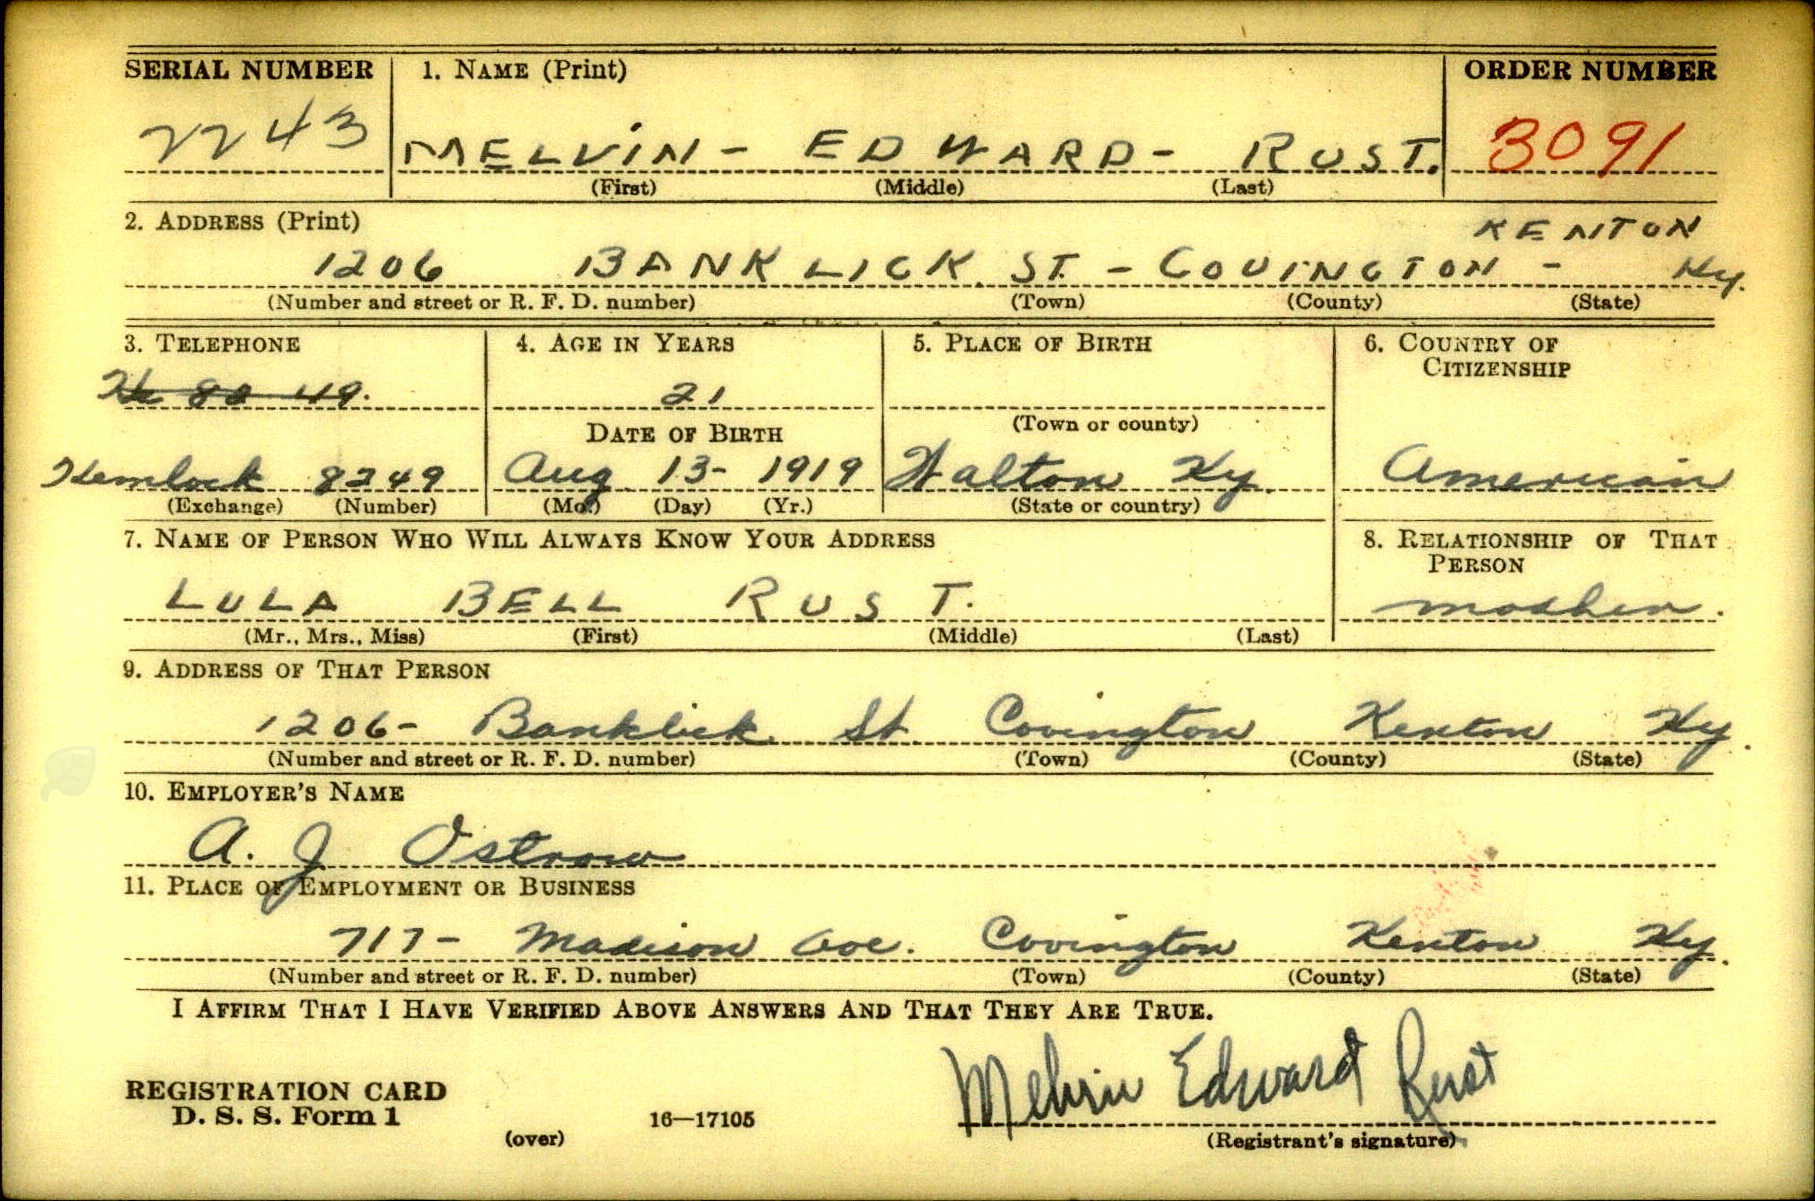 SERIAL NUMBER 1. NAME (Print) ORDER NUMBER
2243 MELVIN - EDWARD - RUST. 3091
(First) (Middle) (Last)
2. ADDRESS (Print) KENTON
1206 BANKLICK ST. - COVINGTON - Ky.
(Number and street or R. F. D. number) (Town) (County) (State)
3. TELEPHONE 4. AGE IN YEARS 5. PLACE OF BIRTH 6. COUNTRY OF
CITIZENSHIP
49. 21
(Town or county)
DATE OF BIRTH
Hemlock 8249 Aug 13- 1919 Walton Ky. American
(Exchange) (Number) (Mo.) (Day) (Yr.) (State or country)
7. NAME OF PERSON WHO WILL ALWAYS KNOW YOUR ADDRESS 8. RELATIONSHIP OF THAT
PERSON
LULA BELL RUST. mother.
(Mr., Mrs., Miss) (First) (Middle) (Last)
9. ADDRESS OF THAT PERSON
1206- Banklick St. Covington Kenton Ky.
(Number and street or R. F. D. number) (Town) (County) (State)
10. EMPLOYER'S NAME
A. J Ostrow
11. PLACE OF EMPLOYMENT OR BUSINESS
717- Madison Ave. Covington Kenton Ky.
(Number and street or R. F. D. number) (Town) (County) (State)
I AFFIRM THAT I HAVE VERIFIED ABOVE ANSWERS AND THAT THEY ARE TRUE.
Melvin Edward Rust
REGISTRATION CARD
D. S. S. Form 1 16—17105
(over) (Registrant's signature)